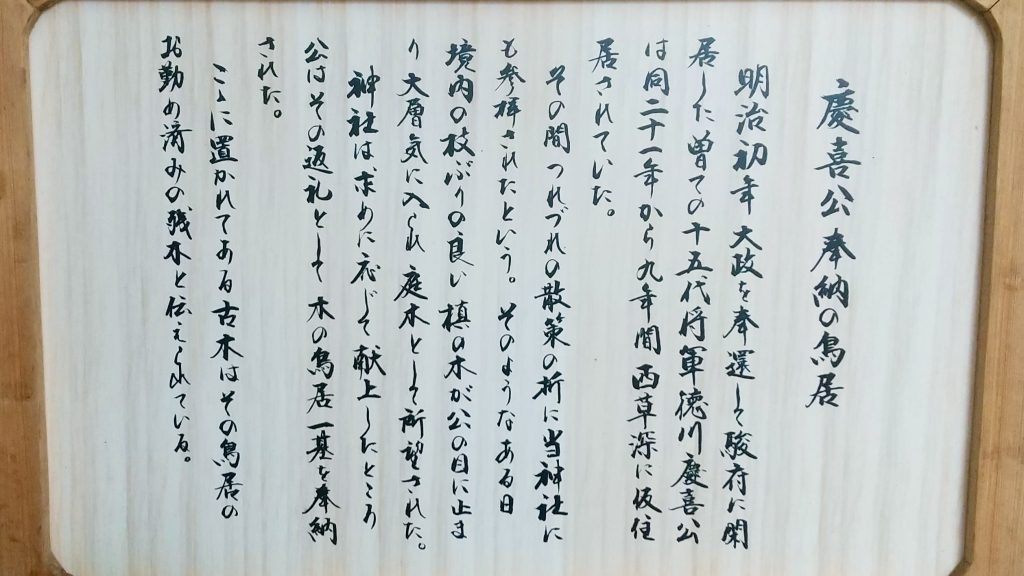 慶喜公奉納の鳥居
明治初年大政を奉還して駿府に閑
居した曽ての十五代将軍徳川慶喜公
は同二十一年から九年間西草深に仮住
居されていた。
その間つれづれの散策の折に当神社に
も参拝されたという。そのようなある日
境内の枝ぶりの良い槙の木が公の目に止ま
り大層気に入られ庭木として所望された。
神社は求めに応じて献上したところ
公はその返礼として木の鳥居一基を奉納
された。
こゝに置かれてある古木はその鳥居の
お勤め済みの残木と伝えられている。